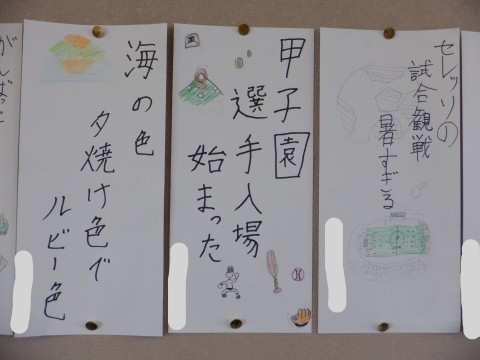 セレッソの
試合観戦
暑すぎる
甲子園
選手入場
始まった
海の色
夕焼け色で
ルビー色
がんばった